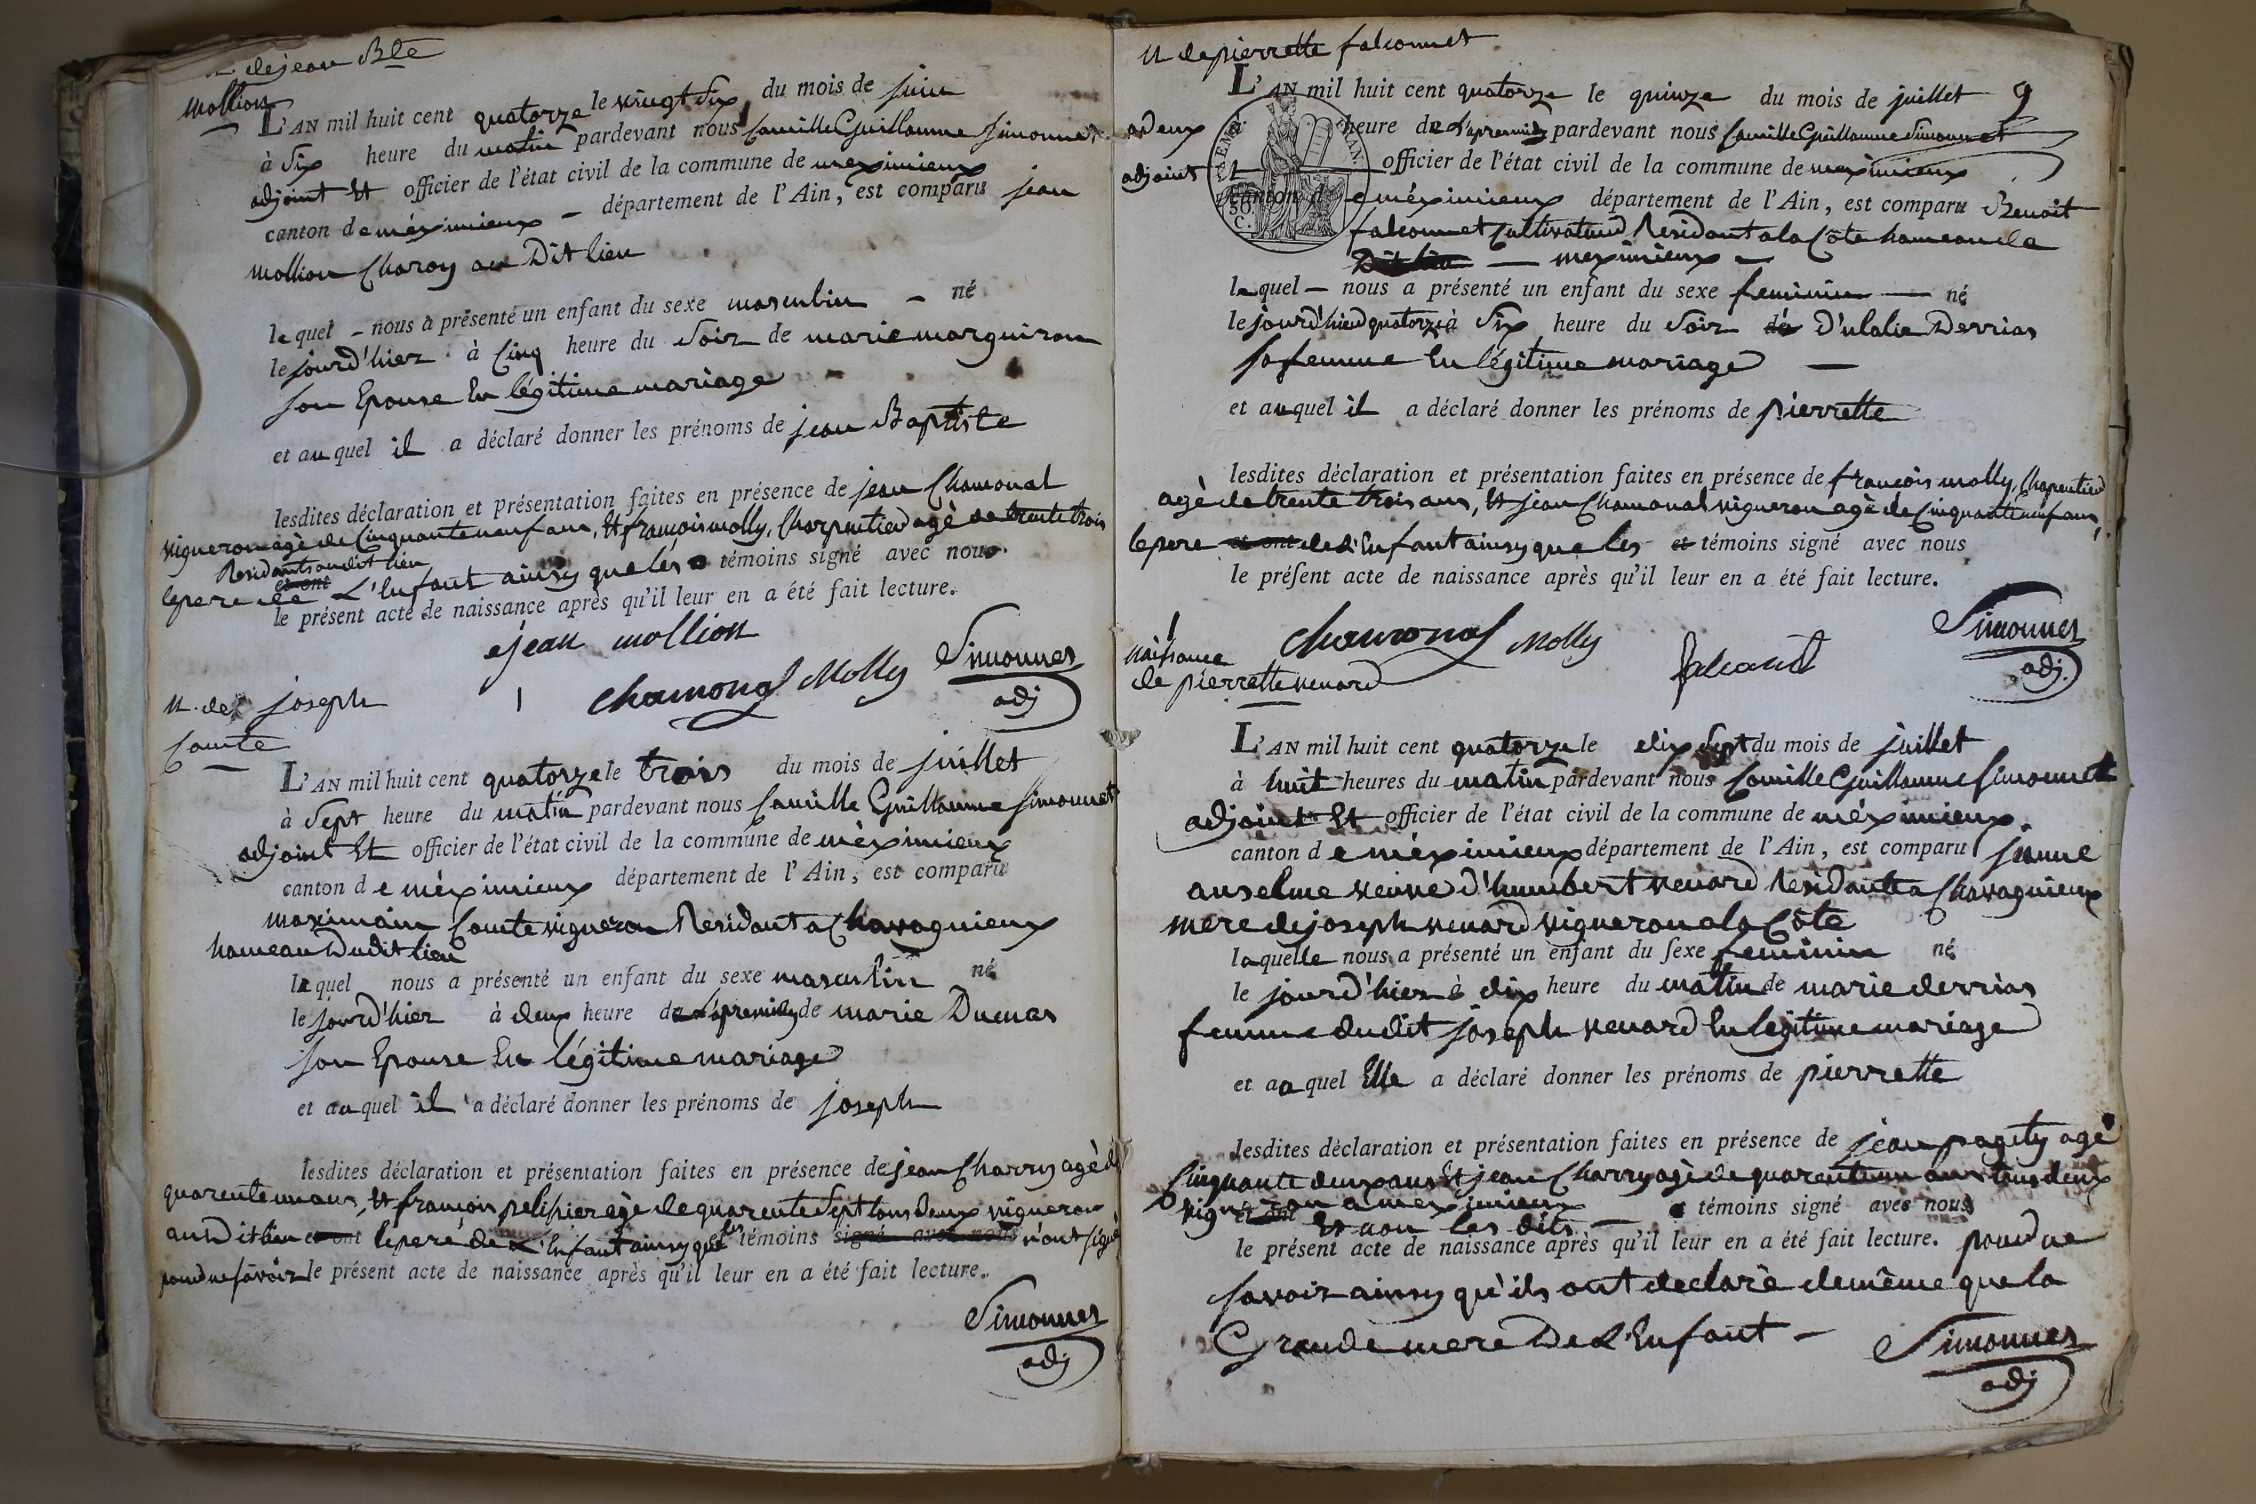 N. de jean Bte
Mollion
L'AN mil huit cent quatorze le vingt six du mois de juin
à six heure du matin pardevant nous Camille Guillaume Simonnet
adjoint Et officier de l'état civil de la commune de meximieux
canton de méximieux - département de l'Ain, est comparu jean
mollion Charon au Dit lieu
lequel - nous a présenté un enfant du sexe masculin - né
le jourd'hier à Cinq heure du Soir de marie marguiron
son Epouse En légitime mariage
et auquel il a déclaré donner les prénoms de jean Baptiste
lesdites déclaration et présentation faites en présence de jean Chamonal
vigneron agè de Cinquante neuf ans, Et françois molly, Charpentier agè de trente trois
Residants audit lieu
le pere de L'Enfant ainsy que les témoins signé avec nous
le présent acte de naissance après qu'il leur en a été fait lecture.
jean mollion
Chamonal Molly Simonnet
adj
N. de joseph
Comte
L'AN mil huit cent quatorze le trois du mois de juillet
à Sept heure du matin pardevant nous Camille Guillaume Simonnet
adjoint Et officier de l'état civil de la commune de mèximieux
canton de mèximieux département de l'Ain, est comparu
maximain Comte vigneron Residant a Chavagnieux
hameau Dudit lieu
lequel nous a présenté un enfant du sexe masculin né
le jourd'hier à deux heure de L'apremidy de marie Dumas
son Epouse En légitime mariage
et auquel il a déclaré donner les prénoms de joseph
lesdites déclaration et présentation faites en présence de jean Charry agè de
quarente un ans, Et françois pelissier agè de quarente Sept tous Deux vigneron
au Dit lieu et ont le pere de L'Enfant ainsy que les témoins signé avec nous n'ont signé
pour ne savoir le présent acte de naissance après qu'il leur en a été fait lecture.
Simonnet
adj
N de pierrette falconnet
L'AN mil huit cent quatorze le quinze du mois de juillet 9
à deux heure de L'apremidy pardevant nous Camille Guillaume Simonnet
adjoint Et officier de l'état civil de la commune de meximieux
canton de méximieux département de l'Ain, est comparu Benoit
falconnet Cultivateur Residant a la Côte hameau de
Dit lieu - meximieux -
lequel - nous a présenté un enfant du sexe feminin - né
le jourd'hier quatorze à Six heure du Soir de D'ulalie Derrias
sa femme En légitime mariage -
et auquel il a déclaré donner les prénoms de pierrette
lesdites déclaration et présentation faites en présence de françois molly, Charpentier
agè de trente trois ans, Et jean Chamonal vigneron agè de Cinquante neuf ans,
le pere et ont de L'Enfant ainsy que les et témoins signé avec nous
le présent acte de naissance après qu'il leur en a été fait lecture.
Chamonal Molly falconet Simonnet
adj.
Naissance
de pierrette venard
L'AN mil huit cent quatorze le dix Sept du mois de juillet
à huit heures du matin pardevant nous Camille Guillaume Simonnet
adjoint Et officier de l'état civil de la commune de méximieux
canton de méximieux département de l'Ain, est comparu jeanne
anselme veuve d'humbert venard Residante a Chavagnieux
mere de joseph venard vigneron a la Côte
laquelle nous a présenté un enfant du sexe feminin né
le jourd'hier à dix heure du matin de marie derrias
femme dudit joseph venard En legitime mariage
et auquel Elle a déclaré donner les prénoms de pierrette
lesdites déclaration et présentation faites en présence de jean pagity agè
Cinquante deux ans Et jean Charry agè de quarente un ans tous deux
vigneron a meximieux témoins signé avec nous
et ont Et non les dits
le présent acte de naissance après qu'il leur en a été fait lecture. pour ne
savoir ainsy qu'ils ont declarè de même que la
Grande mere De L'Enfant - Simonnet
adj